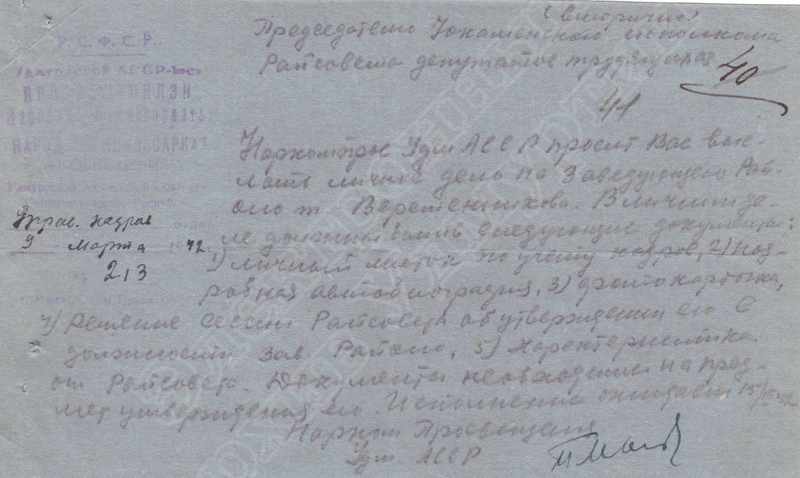 (вторично)
Председателю Юкаменского исполкома
Райсовета депутатов трудящихся
40
41
Р.С.Ф.С.Р.
Наркомпрос Удм АССР просит Вас выс-
лать личное дело на Заведующего Рай-
оно т. Веретенникова. В личном де-
ле должны быть следующие документы:
Управ. кадров
9 марта 42
213
1) личный листок по учету кадров, 2) под-
робная автобиография, 3) фотокарточка,
4) Решение Сессии Райсовета об утверждении его в
должности зав. Районо, 5) Характеристика
от Райсовета. Документы необходимы на пред-
мет утверждения его. Исполнение ожидаем 15/
Нарком Просвещения
Удм. АССР